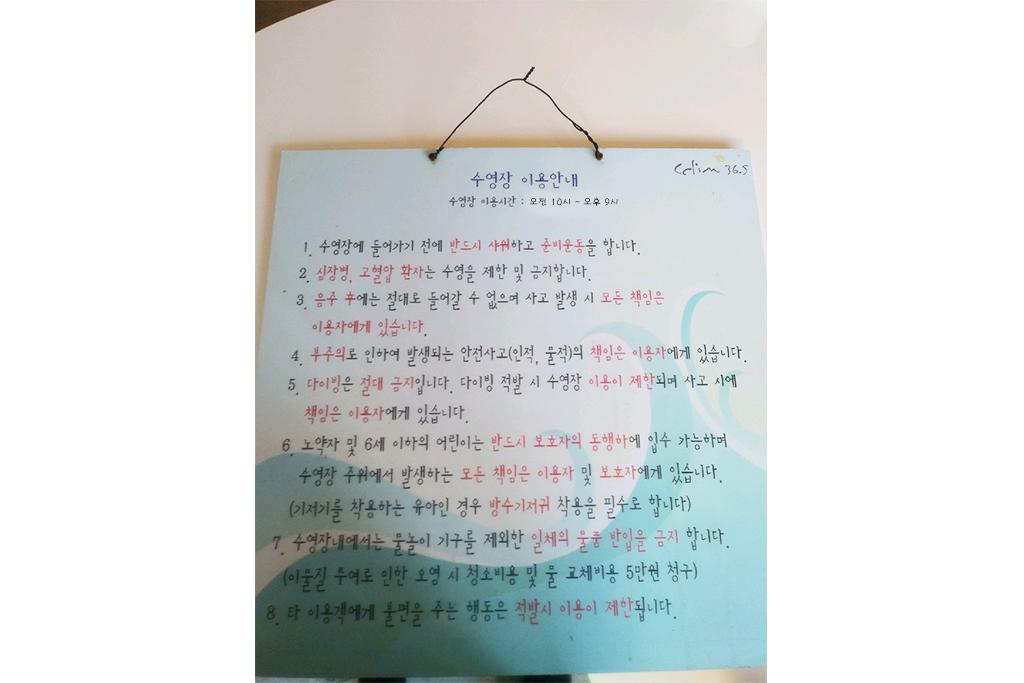 수영장 이용안내
Celim 36.5
수영장 이용시간 : 오전 10시 ~ 오후 9시
1. 수영장에 들어가기 전에 반드시 샤워하고 준비운동을 합니다.
2. 심장병, 고혈압 환자는 수영을 제한 및 금지합니다.
3. 음주 후에는 절대로 들어갈 수 없으며 사고 발생 시 모든 책임은
이용자에게 있습니다.
4. 부주의로 인하여 발생되는 안전사고(인적, 물적)의 책임은 이용자에게 있습니다.
5. 다이빙은 절대 금지입니다. 다이빙 적발 시 수영장 이용이 제한되며 사고 시에
책임은 이용자에게 있습니다.
6. 노약자 및 6세 이하의 어린이는 반드시 보호자의 동행하에 입수 가능하며
수영장 주위에서 발생하는 모든 책임은 이용자 및 보호자에게 있습니다.
(기저기를 착용하는 유아인 경우 방수기저귀 착용을 필수로 합니다)
7. 수영장내에서는 물놀이 기구를 제외한 일체의 물품 반입을 금지 합니다.
(이물질 투여로 인한 오염 시 청소비용 및 물 교체비용 5만원 청구)
8. 타 이용객에게 불편을 주는 행동은 적발시 이용이 제한됩니다.